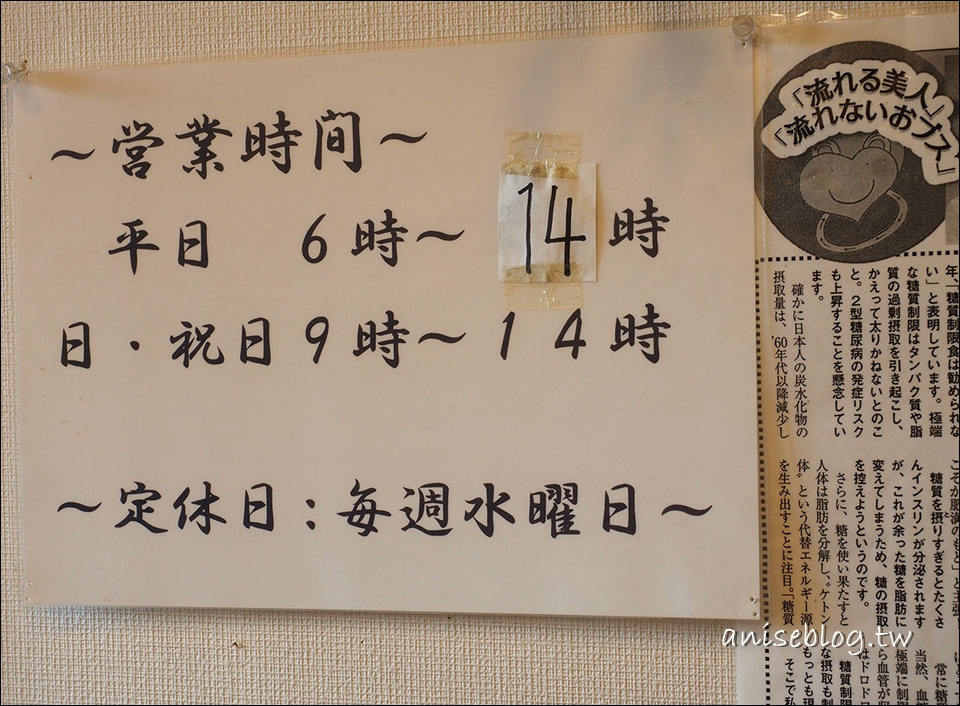 ～営業時間～
平日 6時～14時
日・祝日9時～14時
～定休日：毎週水曜日～
「流れる美人」
「流れないおブス」
年、「糖質制限食は勧められな
い」と表明しています。極端
な糖質制限はタンパク質や脂
質の過剰摂取を引き起こし、
かえって太りかねないとのこ
と。2型糖尿病の発症リスク
も上昇することを懸念してい
ます。
確かに日本人の炭水化物の
摂取量は、'60年代以降減少し
こそが肥満のもと」と主張。
糖質を摂りすぎるとたくさ
んインスリンが分泌されます
が、これが余った糖を脂肪に
変えてしまうため、糖の摂取
を控えようというのです。
さらに、糖を使い果たすと
人体は脂肪を分解し、"ケトン
体"という代替エネルギー源
を生み出すことに注目。「糖質
常に糖
当然、血
極端に制限
ら血管が
はドロドロ
糖質制限
な摂取も制
もっとも現
そこで私
aniseblog.tw